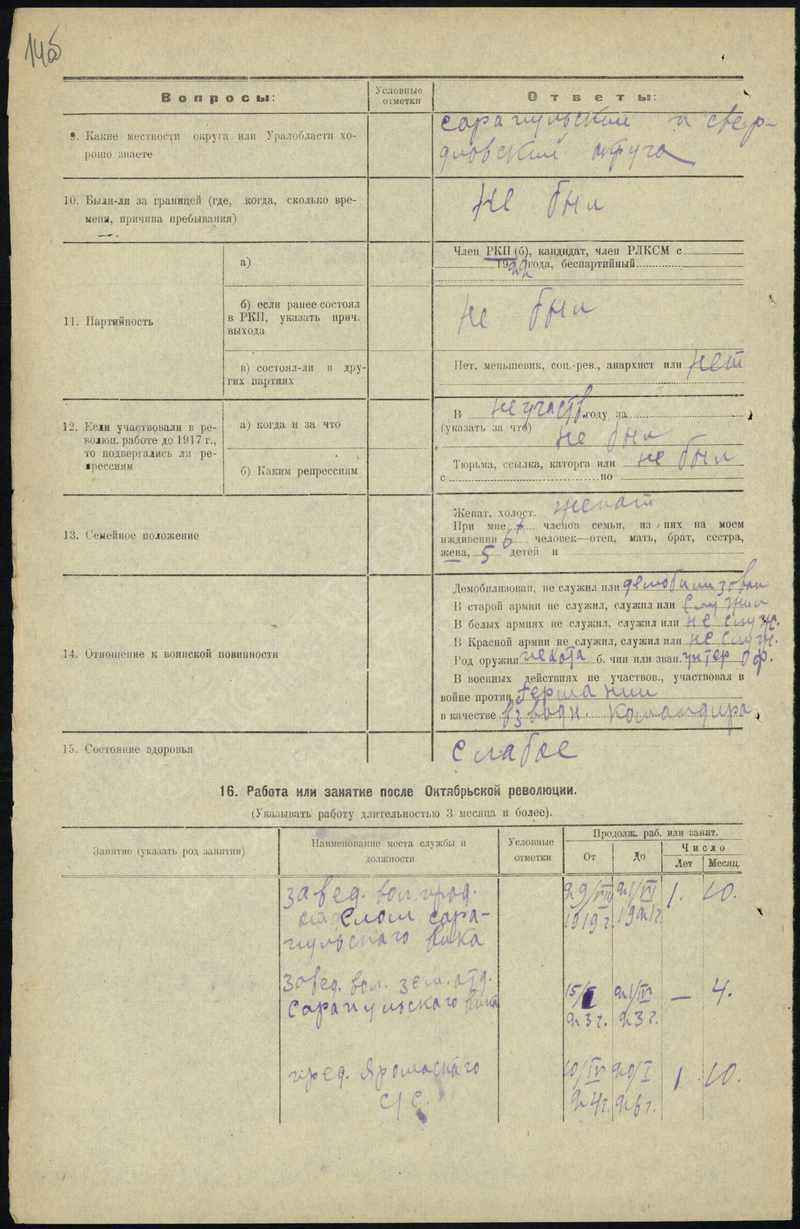 145
Вопросы:
Условные
отметки
Ответы:
9. Какие местности округа или Уралобласти хо-
рошо знаете
сарапульский и свер-
дловский округа
10. Были-ли за границей (где, когда, сколько вре-
мени, причина пребывания)
не был
11. Партийность
а)
Член РКП (б), кандидат, член РЛКСМ с
192 года, беспартийный
б) если ранее состоял
в РКП, указать прич.
выхода
не был
в) состоял-ли в дру-
гих партиях
Нет, меньшевик, соц.-рев., анархист или нет
12. Если участвовали в ре-
волюц. работе до 1917 г.,
то подвергались ли ре-
прессиям
а) когда и за что
В не участв. году за
(указать за что) не был
б) Каким репрессиям
Тюрьма, ссылка, каторга или не был
с по
13. Семейное положение
Женат, холост. женат
При мне членов семьи, из них на моем
иждивении 6 человек—отец, мать, брат, сестра,
жена, 5 детей и
14. Отношение к воинской повинности
Демобилизован, не служил или демобилизован
В старой армии не служил, служил или служил
В белых армиях не служил, служил или не служ.
В Красной армии не служил, служил или не служ.
Род оружия пехота б. чин или зван. унтер оф.
В военных действиях не участвов., участвовал в
войне против Германии
в качестве взводн. командира
15. Состояние здоровья
слабое
16. Работа или занятие после Октябрьской революции.
(Указывать работу длительностью 3 месяца и более).
Занятие (указать род занятий)
Наименование места службы и
должности
Условные
отметки
Продолж. раб. или занят.
От
До
Число
Лет
Месяц.
завед. вол. прод.
столом сара-
пульского вика
29/VIII
1919 г.
1921 г.
1. 10.
завед. вол. зем. отд.
Сарапульского вика
15/
23 г.
21/IV
23 г.
— 4.
пред. Яромаского
с/с.
10/IV
24 г.
20/I
26 г.
1 10.